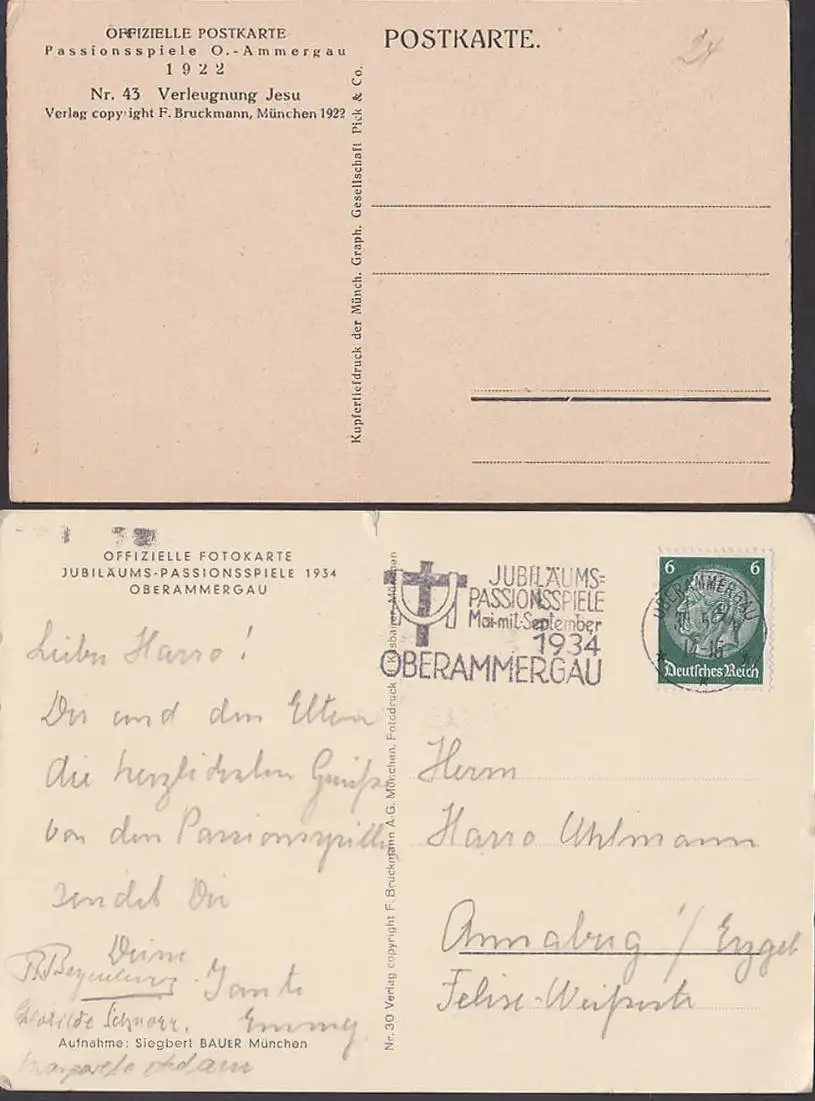 OFFIZIELLE POSTKARTE
Passionsspiele O.-Ammergau
1922
Nr. 43 Verleugnung Jesu
Verlag copyright F. Bruckmann, München 1922
Kupfertiefdruck der Münch. Graph. Gesellschaft Pick & Co.
POSTKARTE.
OFFIZIELLE FOTOKARTE
JUBILÄUMS-PASSIONSSPIELE 1934
OBERAMMERGAU
Lieber Harro!
Dir und den Eltern
die herzlichsten Grüße
von den Passionsspielen
sendet Dir
Deine
Tante
Emmy.
Clotilde Schnorr.
Margarete Adam
Aufnahme: Siegbert BAUER München
Nr. 30 Verlag copyright F. Bruckmann A-G. München. Fotodruck
JUBILÄUMS=
PASSIONSSPIELE
Mai-mit-September
1934
OBERAMMERGAU
OBERAMMERGAU
6 6
Deutsches Reich
Herrn
Harro Uhlmann
Annaberg i/ Erzgeb